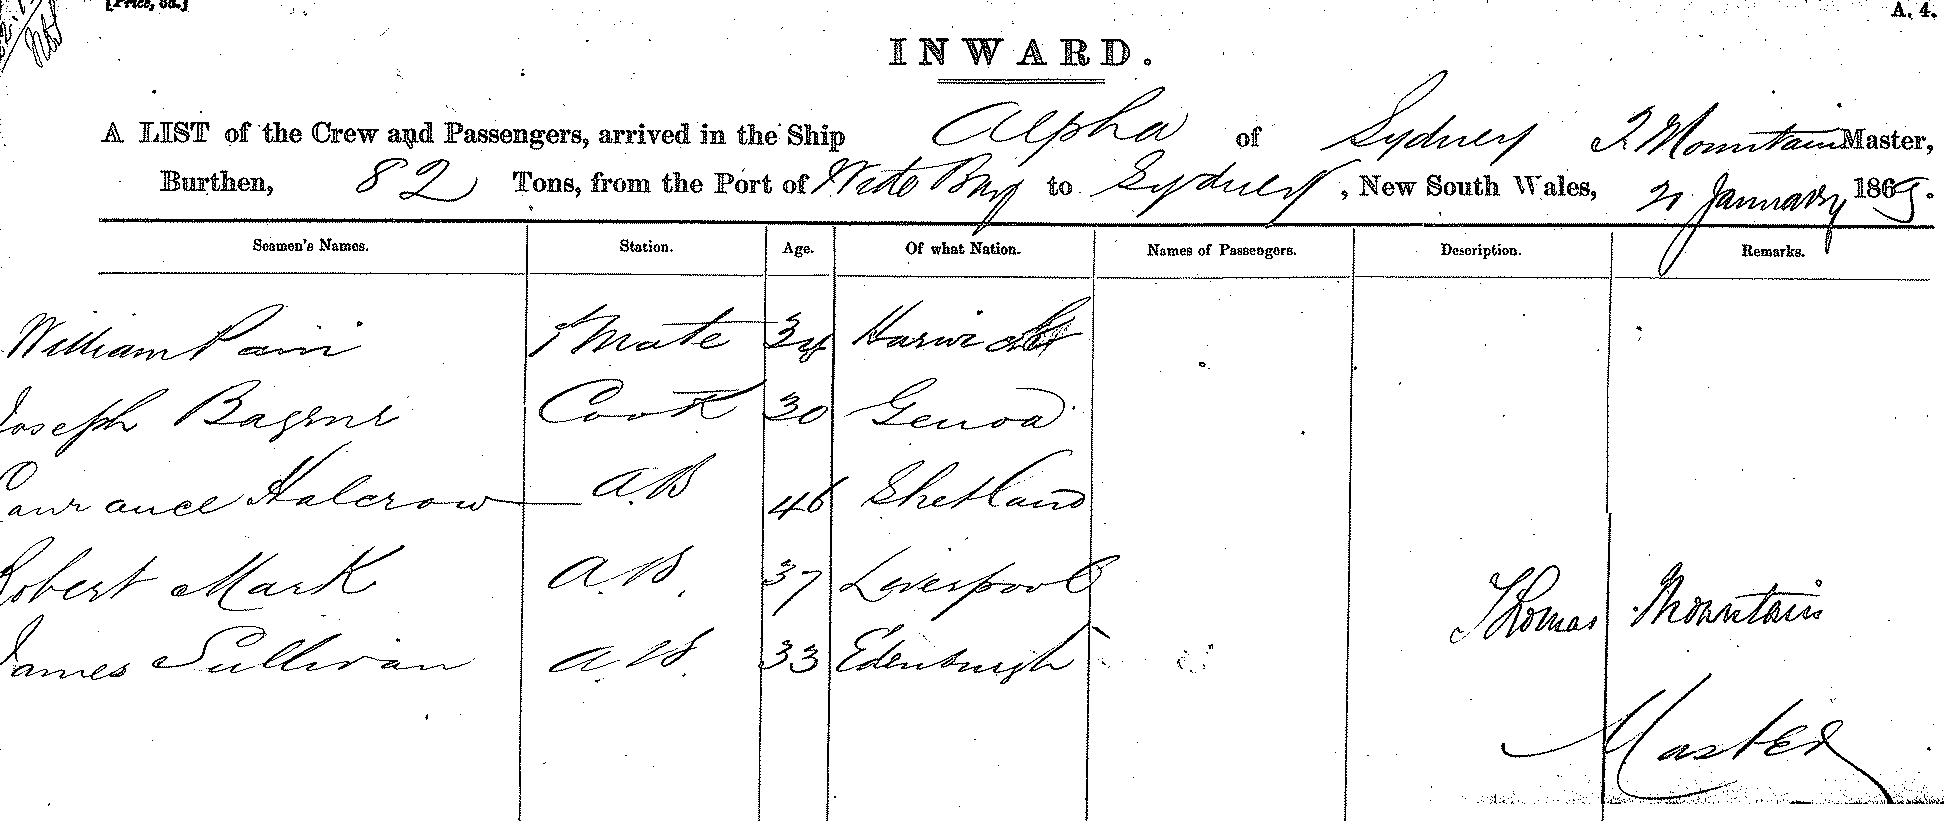 [Price, 6d.]
A. 4.
INWARD.
A LIST of the Crew and Passengers, arrived in the Ship Alpha of Sydney T Mountain Master,
Burthen, 82 Tons, from the Port of Wide Bay to Sydney, New South Wales, 21 January 1865.
Seamen's Names. Station. Age. Of what Nation. Names of Passengers. Description. Remarks.
William Pain 1st Mate 34 Harwich
Joseph 30 Cook Genoa
Laurance Halcrow A.B 46 Shetland
Robert Mark A.B. 37 Liverpool
James Sullivan A.B. 33 Edenburgh
Thomas Mountain
Master